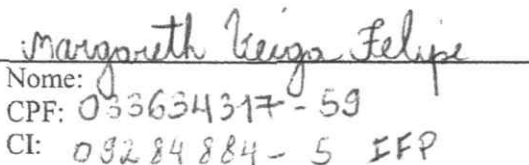 Margareth Veiga Felipe
Nome:
CPF: 033634317-59
CI: 09284884-5 IFP